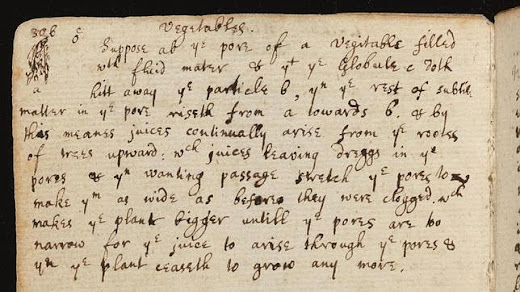 Vegetables.
Suppose ab yᵉ pore of a Vegitable filled
wᵗʰ fluid mater & yᵗ yᵉ Globule c doth
hitt away yᵉ particle b, yⁿ yᵉ rest of subtile
matter in yᵉ pore riseth from a towards b. & by
this meanes juices continually arise from yᵉ rootes
of trees upward: wᶜʰ juices leaving dreggs in yᵉ
pores & yⁿ wanting passage stretch yᵉ pores to
make yᵐ as wide as before they were clogged. wᶜʰ
makes yᵉ plant bigger untill yᵉ pores are too
narrow for yᵉ juice to arise through yᵉ pores &
yⁿ yᵉ plant ceaseth to grow any more.